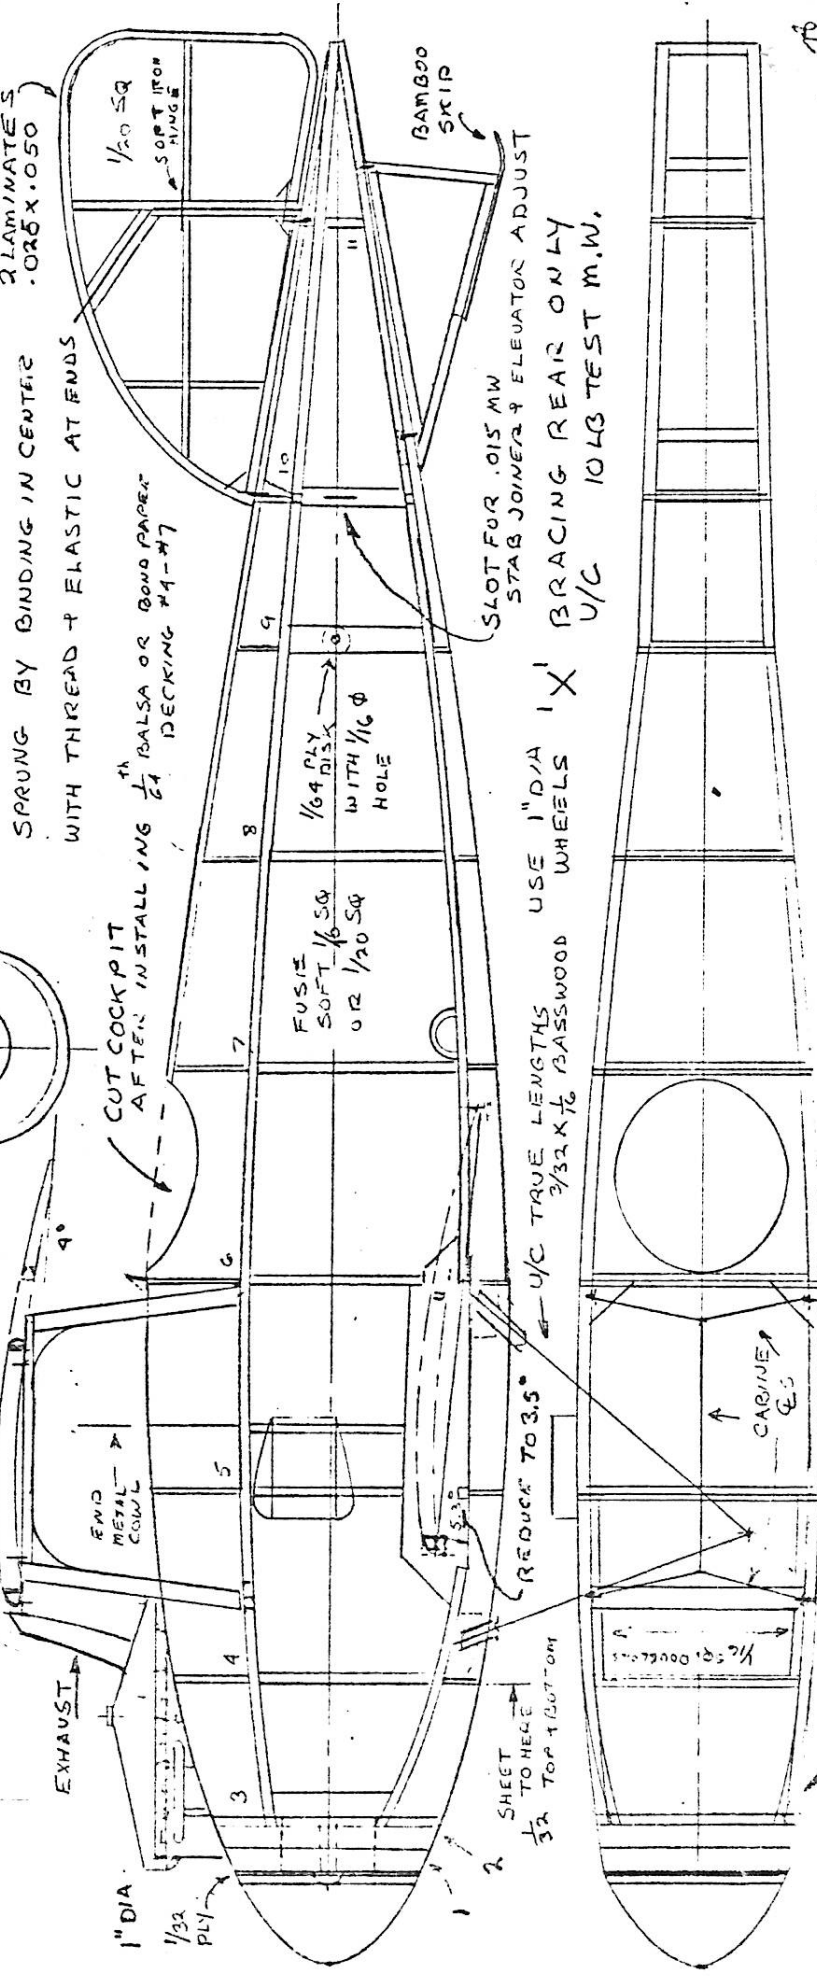 2 LAMINATES
.025 x .050
1/20 SQ
SOFT IRON
HINGE
SPRUNG BY BINDING IN CENTER
WITH THREAD & ELASTIC AT ENDS
BAMBOO
SKID
SLOT FOR .015 MW
STAB JOINER & ELEVATOR ADJUST
'X' BRACING REAR ONLY
U/C 10 LB TEST M.W.
CUT COCKPIT
AFTER INSTALLING 1/64th BALSA OR BOND PAPER
DECKING #4-#7
1/64 PLY
DISK
WITH 1/16 Ø
HOLE
FUSIE
SOFT 1/16 SQ
OR 1/20 SQ
USE 1" DIA
WHEELS
U/C TRUE LENGTHS
3/32 X 1/16 BASSWOOD
4°
END
METAL
COWL
EXHAUST
5.3°
REDUCE TO 3.5°
CABINE
1/16 SQ. DOUBLERS
SHEET
TO HERE
1/32 TOP & BOTTOM
1" DIA
1/32
PLY
1
2
3
4
5
6
7
8
9
10
11